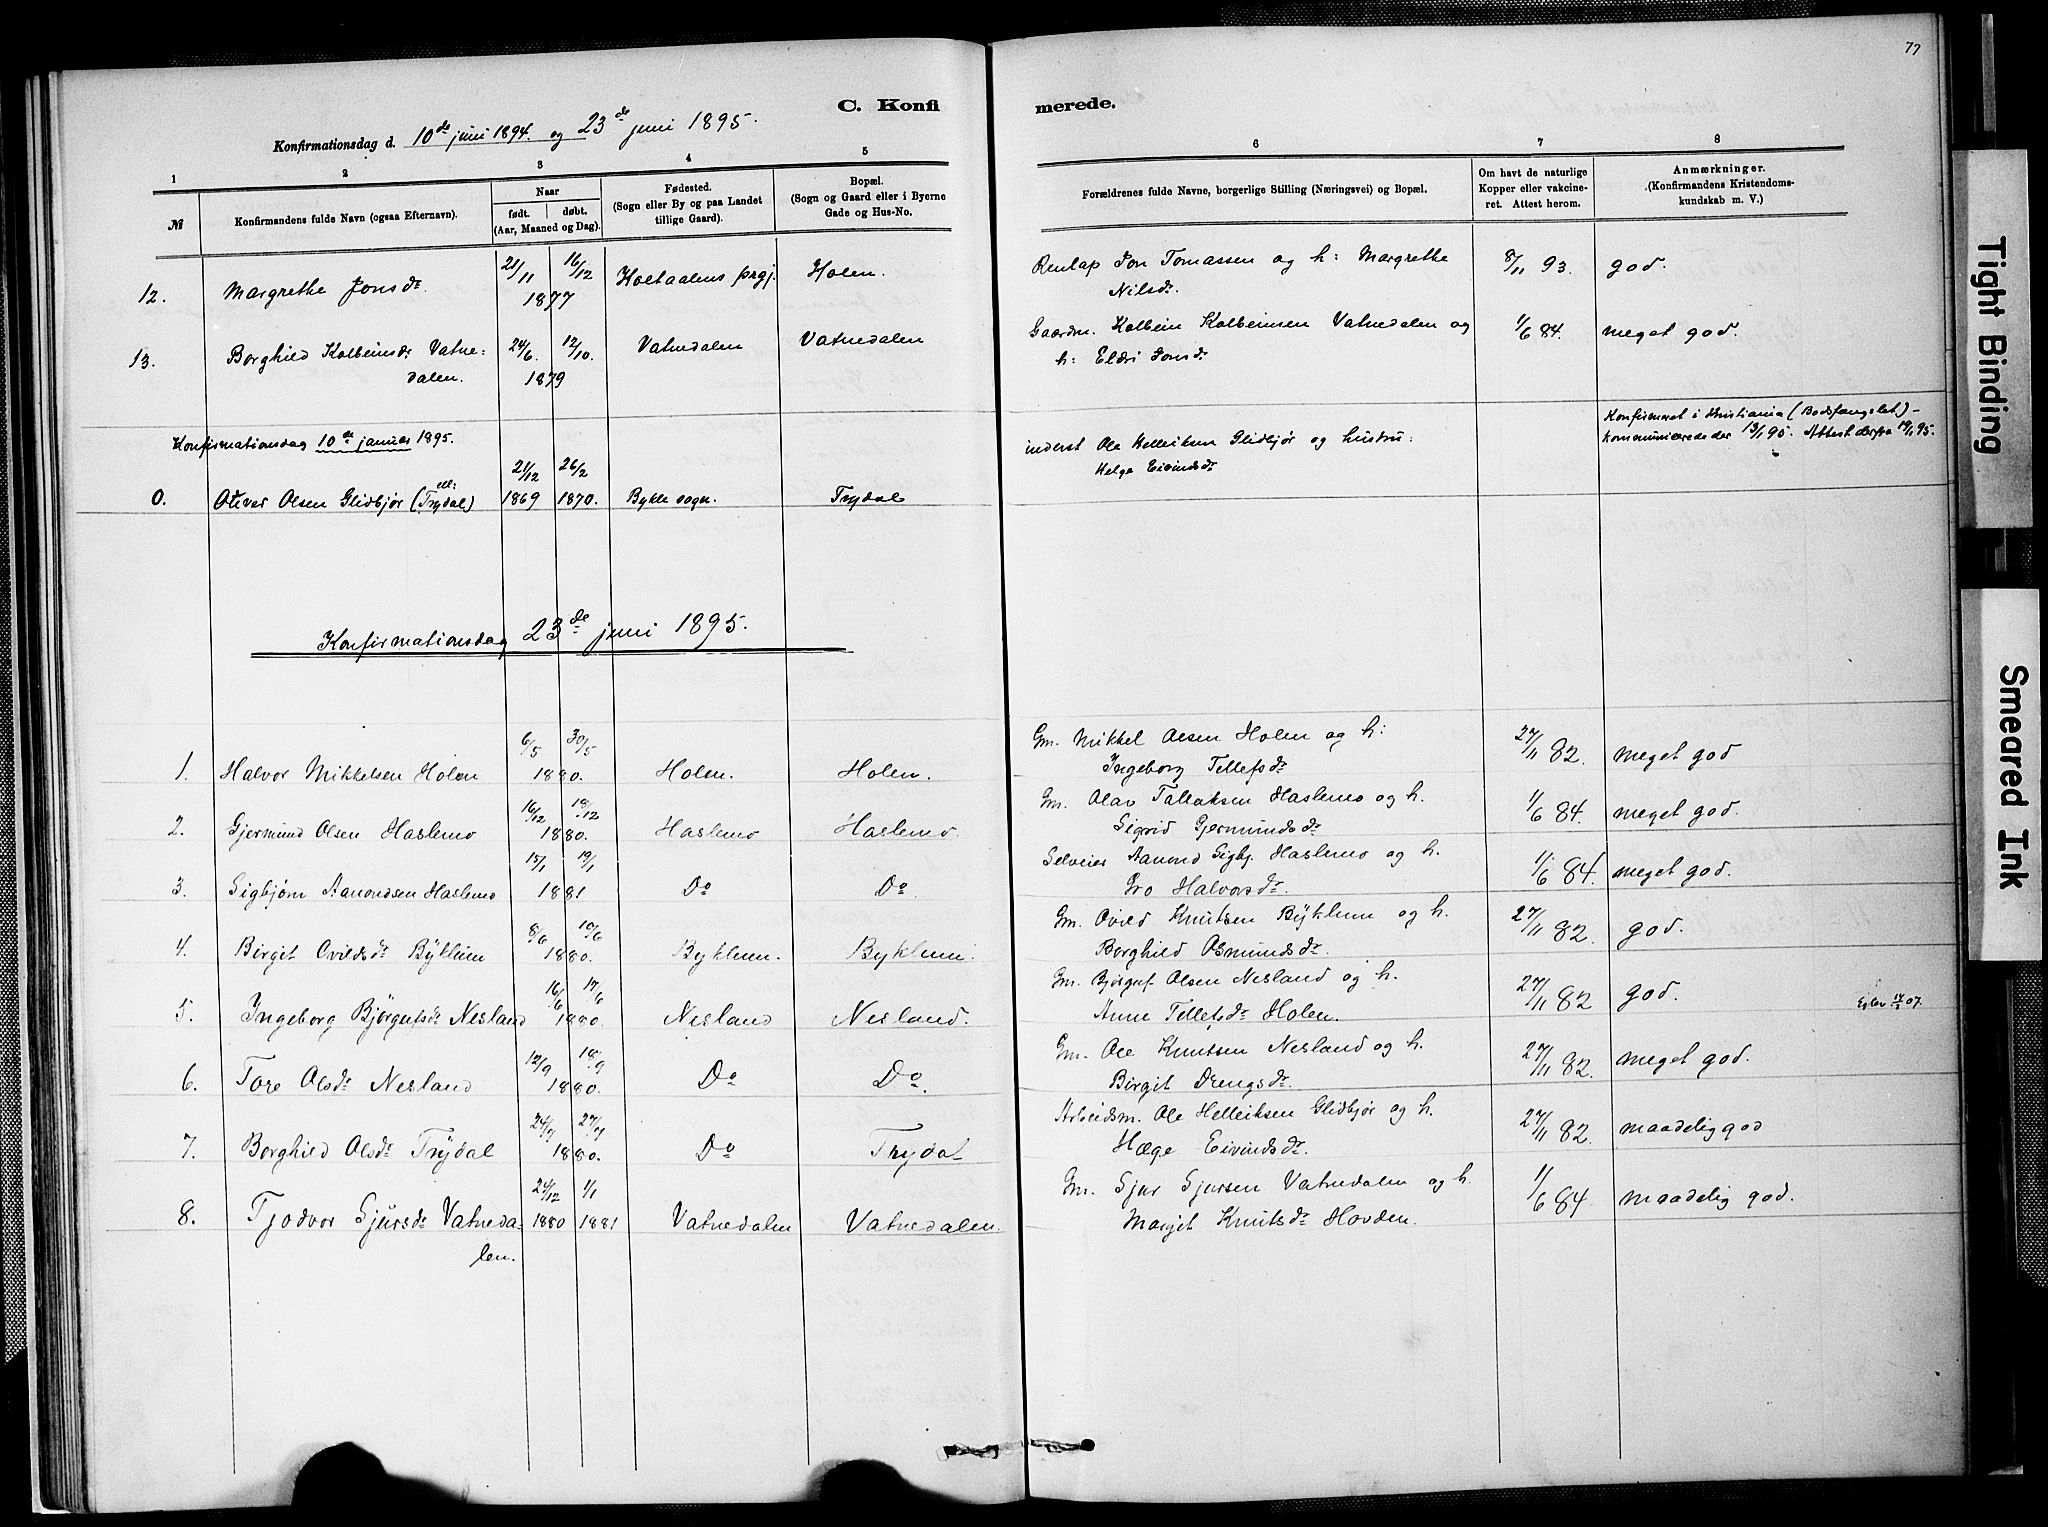 77
C. Konfi
merede.
Konfirmationsdag d. 10de juni 1894. og 23de juni 1895.
1 2 3 4 5 6 7 8
№ Konfirmandens fulde Navn (ogsaa Efternavn). Naar født. døbt. (Aar, Maaned og Dag). Fødested. (Sogn eller By og paa Landet tillige Gaard). Bopæl. (Sogn og Gaard eller i Byerne Gade og Hus-No. Forældrenes fulde Navne, borgerlige Stilling (Næringsvei) og Bopæl. Om havt de naturlige Kopper eller vakcineret. Attest herom. Anmærkninger. (Konfirmandens Kristendomskundskab m. V.)
12. Margrethe Jonsdr. 21/11 16/12 1877 Holtaalens prgj. Holen. Renlap Jon Tomassen og h: Margrethe 8/11 93. god.
Nilsdr.
13. Borghild Kolbeinsdr Vatne= 24/6. 12/10. Vatnedalen Vatnedalen Gaardm. Kolbein Kolbeinsen Vatnedalen og 1/6 84. meget god.
dalen. 1879 h: Eldri Jonsdr
Konfirmationsdag 10de januar 1895.
Konfirmeret i Kristiania (Bodsfængslet) -
kommunicerede der 13/1 95. Attest derfra 19/1 95.
0. Oliver Olsen Glidbjør (ell: Trydal) 21/12 1869 26/2 1870. Bykle sogn. Trydal inderst Ole Helleiksen Glidbjør og hustru:
Helge Eivindsdr
Konfirmationsdag 23de juni 1895.
1. Halvor Mikkelsen Holen 6/5 30/5 1880. Holen. Holen. Gm. Mikkel Olsen Holen og h: 27/11 82. meget god
Ingeborg Tellefsdr
2. Gjermund Olsen Haslemo 16/12 18/12 1880. Haslemo Haslemo Gm. Olav Tallaksen Haslemo og h. 1/6 84. meget god.
Sigrid Gjermundsdr
3. Sigbjørn Aanondsen Haslemo 15/1 19/1 1881 Do Do Selveier Aanond Sigbj. Haslemo og h. 1/6 84. meget god.
Gro Halvorsdr.
4. Birgit Ovildsdr Byklum 8/6 10/6 1880. Byklum. Byklum. Gm. Ovild Knutsen Byklum og h. 27/11 82. god.
Borghild Osmundsdr
5. Ingeborg Bjørgufsdr Nesland 16/6 17/6 1880. Nesland Nesland. Gm. Bjørguf Olsen Nesland og h. 27/11 82 god.
Anne Tellefsdr Holen.
6. Tore Olsdr Nesland 12/9 18/9 1880. Do Do. Gm. Ole Knutsen Nesland og h. 27/11 82. meget god.
Birgit Drengsdr.
7. Borghild Olsdr Trydal 24/7 27/7 1880. Do Trydal Arbeidsm. Ole Helleiksen Glidbjør og h. 27/11 82. maadelig god
Hæge Eivindsdr.
8. Tjodvor Sjursdr Vatneda= 24/12 1880 1/1 1881 Vatnedalen Vatnedalen. Gm. Sjur Sjursen Vatnedalen og h. 1/6 84. maadelig god.
len. Margit Knutsdr Hovden.
Tight Binding
Smeared Ink